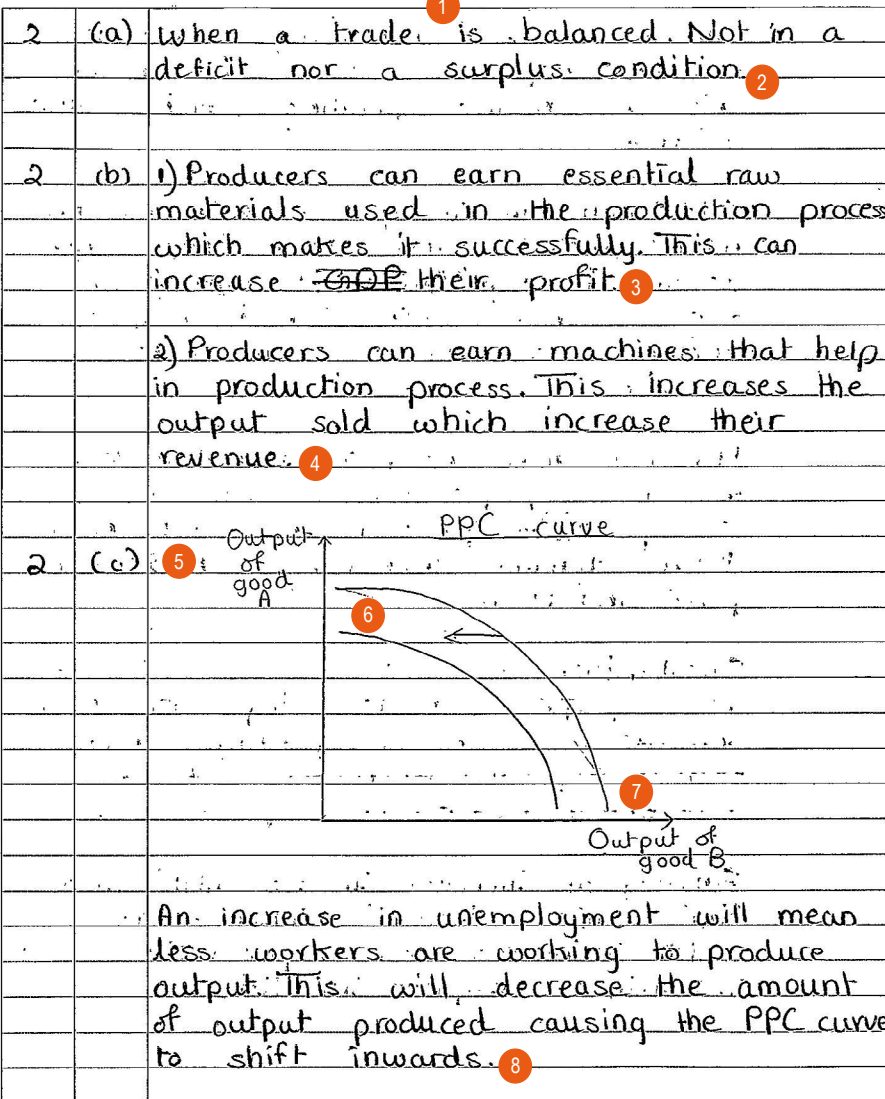 1
2 (a) when a trade is balanced. Not in a
deficit nor a surplus condition. 2
2 (b) 1) Producers can earn essential raw
materials used in the production process
which makes it successfully. This can
increase GDP their profit 3
2) Producers can earn machines that help
in production process. This increases the
output sold which increase their
revenue. 4
PPC curve
2 (c) 5 Output
of
good
A
6
7
Output of
good B
An increase in unemployment will mean
less workers are working to produce
output. This will decrease the amount
of output produced causing the PPC curve
to shift inwards. 8